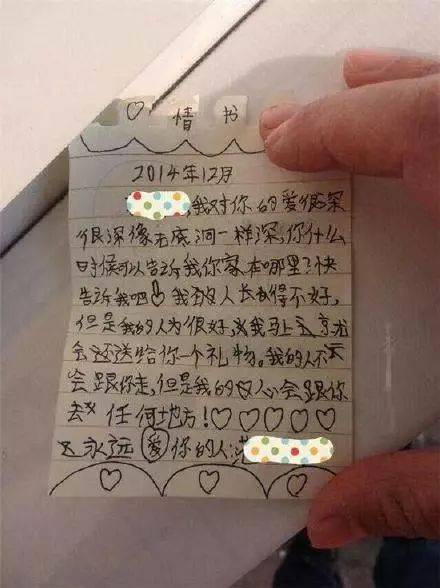 ♡ 情书
2014年12月
我对你的爱很深
很深像无底洞一样深,你什么
时候可以告诉我你家在哪里?快
告诉我吧!我的人长得不好,
但是我的人为很好,我马上
会还送给你一个礼物。我的人不
会跟你走,但是我的心会跟你
去任何地方!♡♡♡♡♡
永远爱你的人: